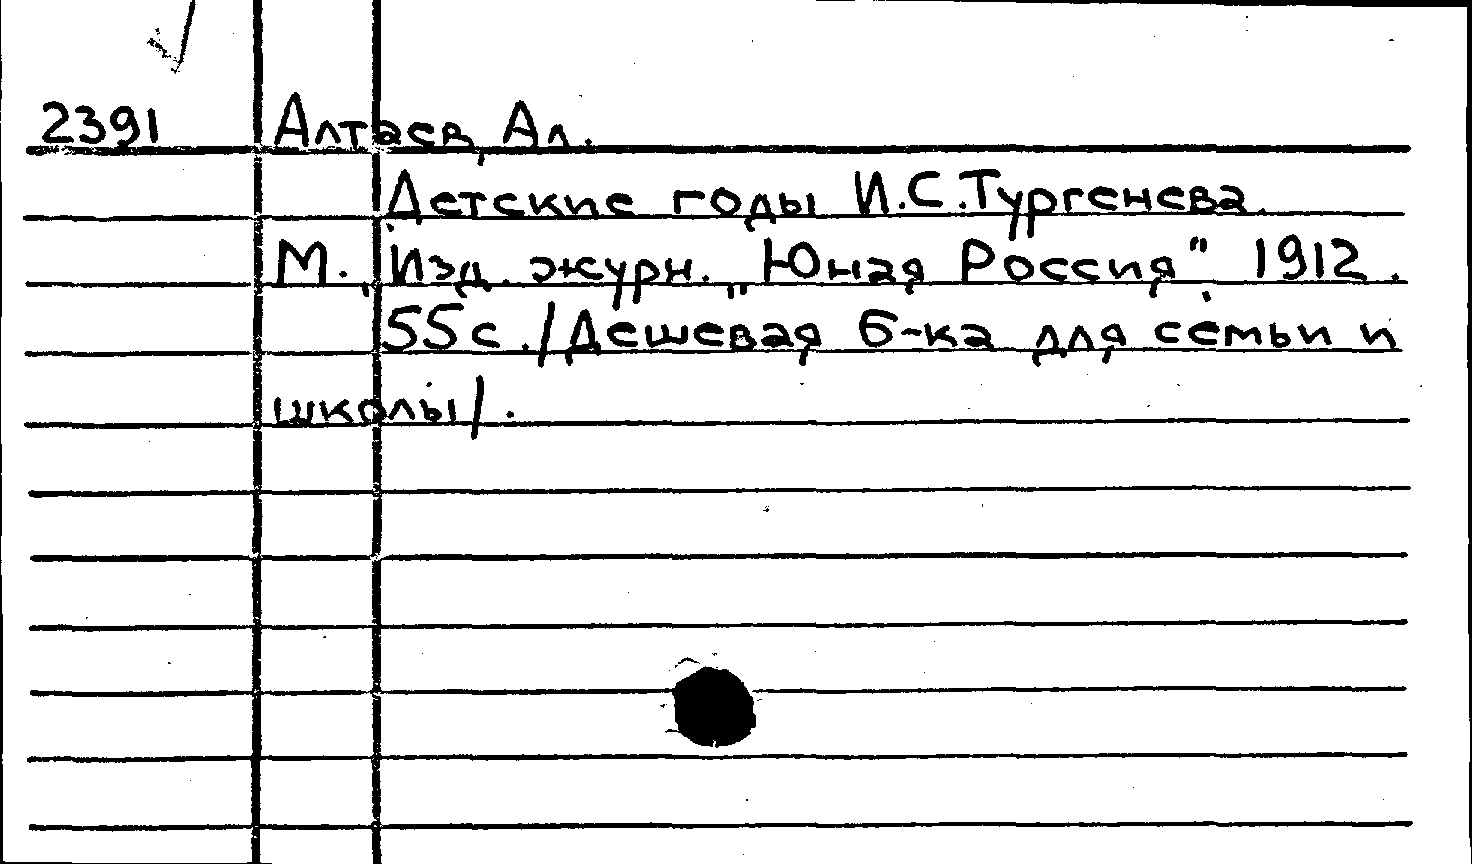 2391 Алтаев, Ал.
Детские годы И.С.Тургенева.
М., Изд. журн. „Юная Россия" 1912.
55с./Дешевая б-ка для семьи и
школы/.